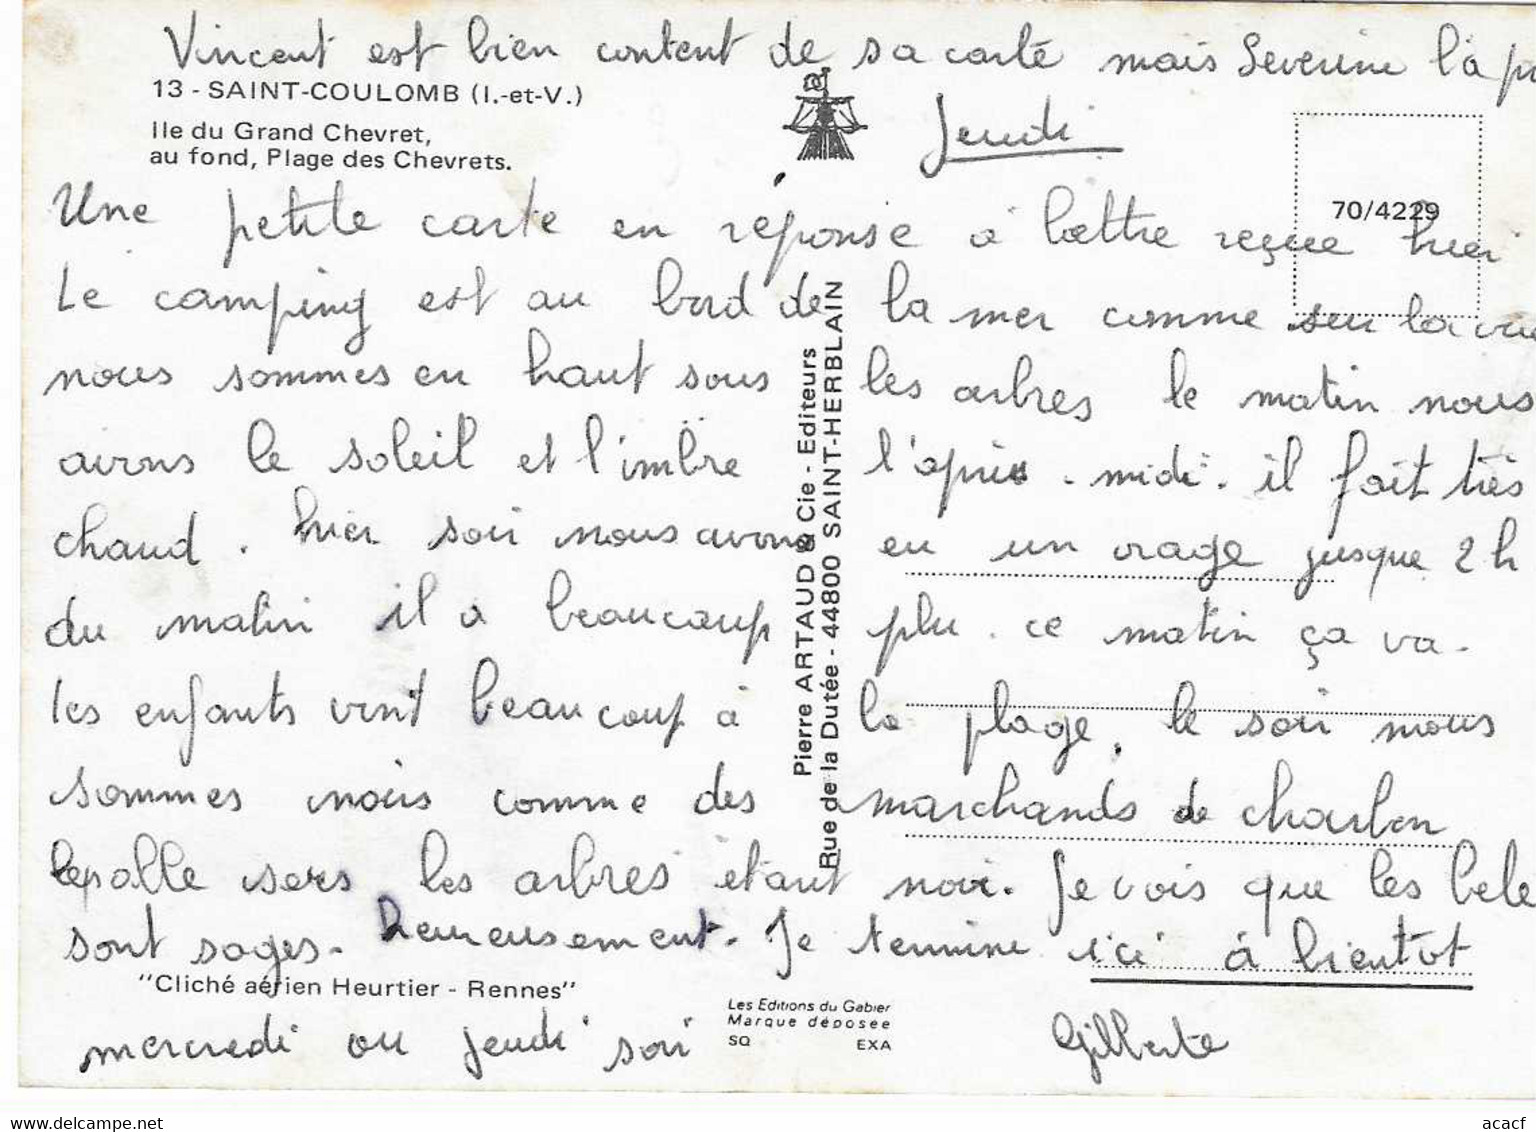 Vincent est bien content de sa carte mais Severine l'a
13 - SAINT-COULOMB (I.-et-V.)
Ile du Grand Chevret,
au fond, Plage des Chevrets.
Jeudi
70/4229
Une petite carte en réponse à laettre reçue hier
Le camping est au bord de la mer comme sur la
nous sommes en haut sous les arbres le matin nous
avons le soleil et l'imbre l'après-midi. il fait très
chaud. hier soir nous avons eu un orage jusque 2h
du matin il a beaucoup plu. ce matin ça va.
les enfants vont beaucoup à la plage. le soir nous
sommes noirs comme des marchands de charbon
les arbres étant noir. Je vois que les
sont sages. heureusement. Je termine ici à bientot
"Cliché aérien Heurtier - Rennes"
mercredi ou jeudi soir
Gilberte
Pierre ARTAUD & Cie - Editeurs
Rue de la Dutée - 44800 SAINT-HERBLAIN
Les Editions du Gabier
Marque déposée
SQ EXA
www.delcampe.net
acacf